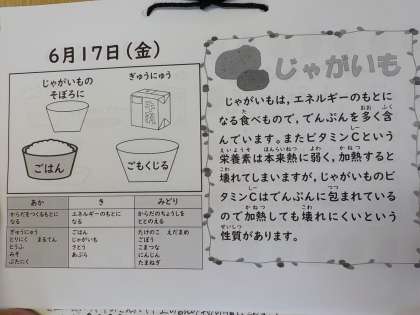 6月17日(金)
じゃがいもの
そぼろに
ぎゅうにゅう
牛乳
ごはん
ごもくじる
あか
き
みどり
からだをつくるもとに
なる
エネルギーのもとに
なる
からだのちょうしを
ととのえる
ぎゅうにゅう
とりにく まるてん
とうふ
みそ
ぶたにく
ごはん
じゃがいも
さとう
あぶら
たけのこ えだまめ
ごぼう
こまつな
にんじん
たまねぎ
じゃがいも
じゃがいもは，エネルギーのもとに
なる食べもので，でんぷんを多く含
んでいます。またビタミンCという
栄養素は本来熱に弱く，加熱すると
壊れてしまいますが，じゃがいものビ
タミンCはでんぷんに包まれている
ので加熱しても壊れにくいという
性質があります。